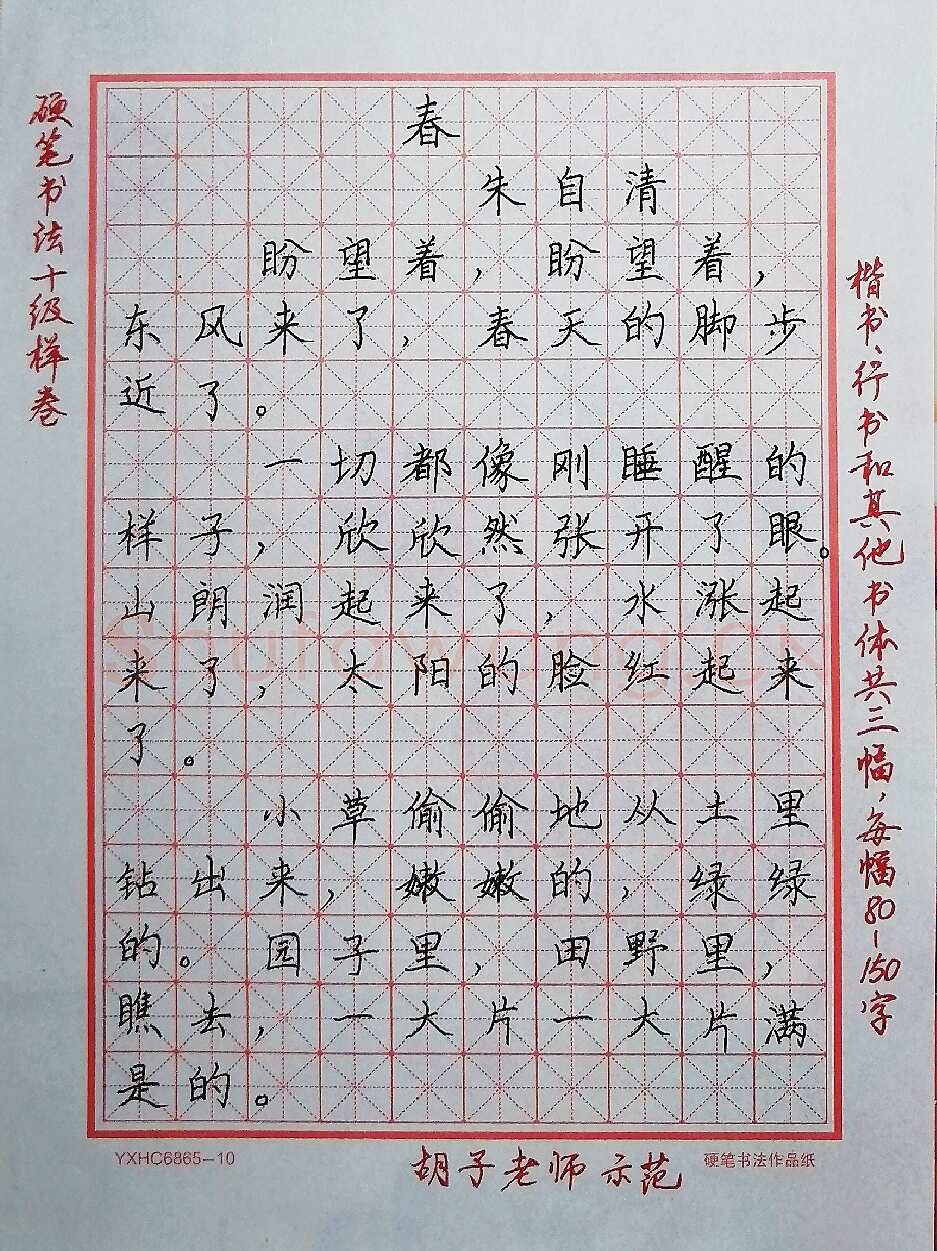 硬笔书法十级样卷
春
朱自清
盼望着，盼望着，
东风来了，春天的脚步
近了。
一切都像刚睡醒的
样子，欣欣然张开了眼。
山朗润起来了，水涨起
来了，太阳的脸红起来
了。
小草偷偷地从土里
钻出来，嫩嫩的，绿绿
的。园子里，田野里，
瞧去，一大片一大片满
是的。
楷书、行书和其他书体共三幅，每幅80-150字
YXHC6865-10
胡子老师 示范
硬笔书法作品纸
Shufawang.cn